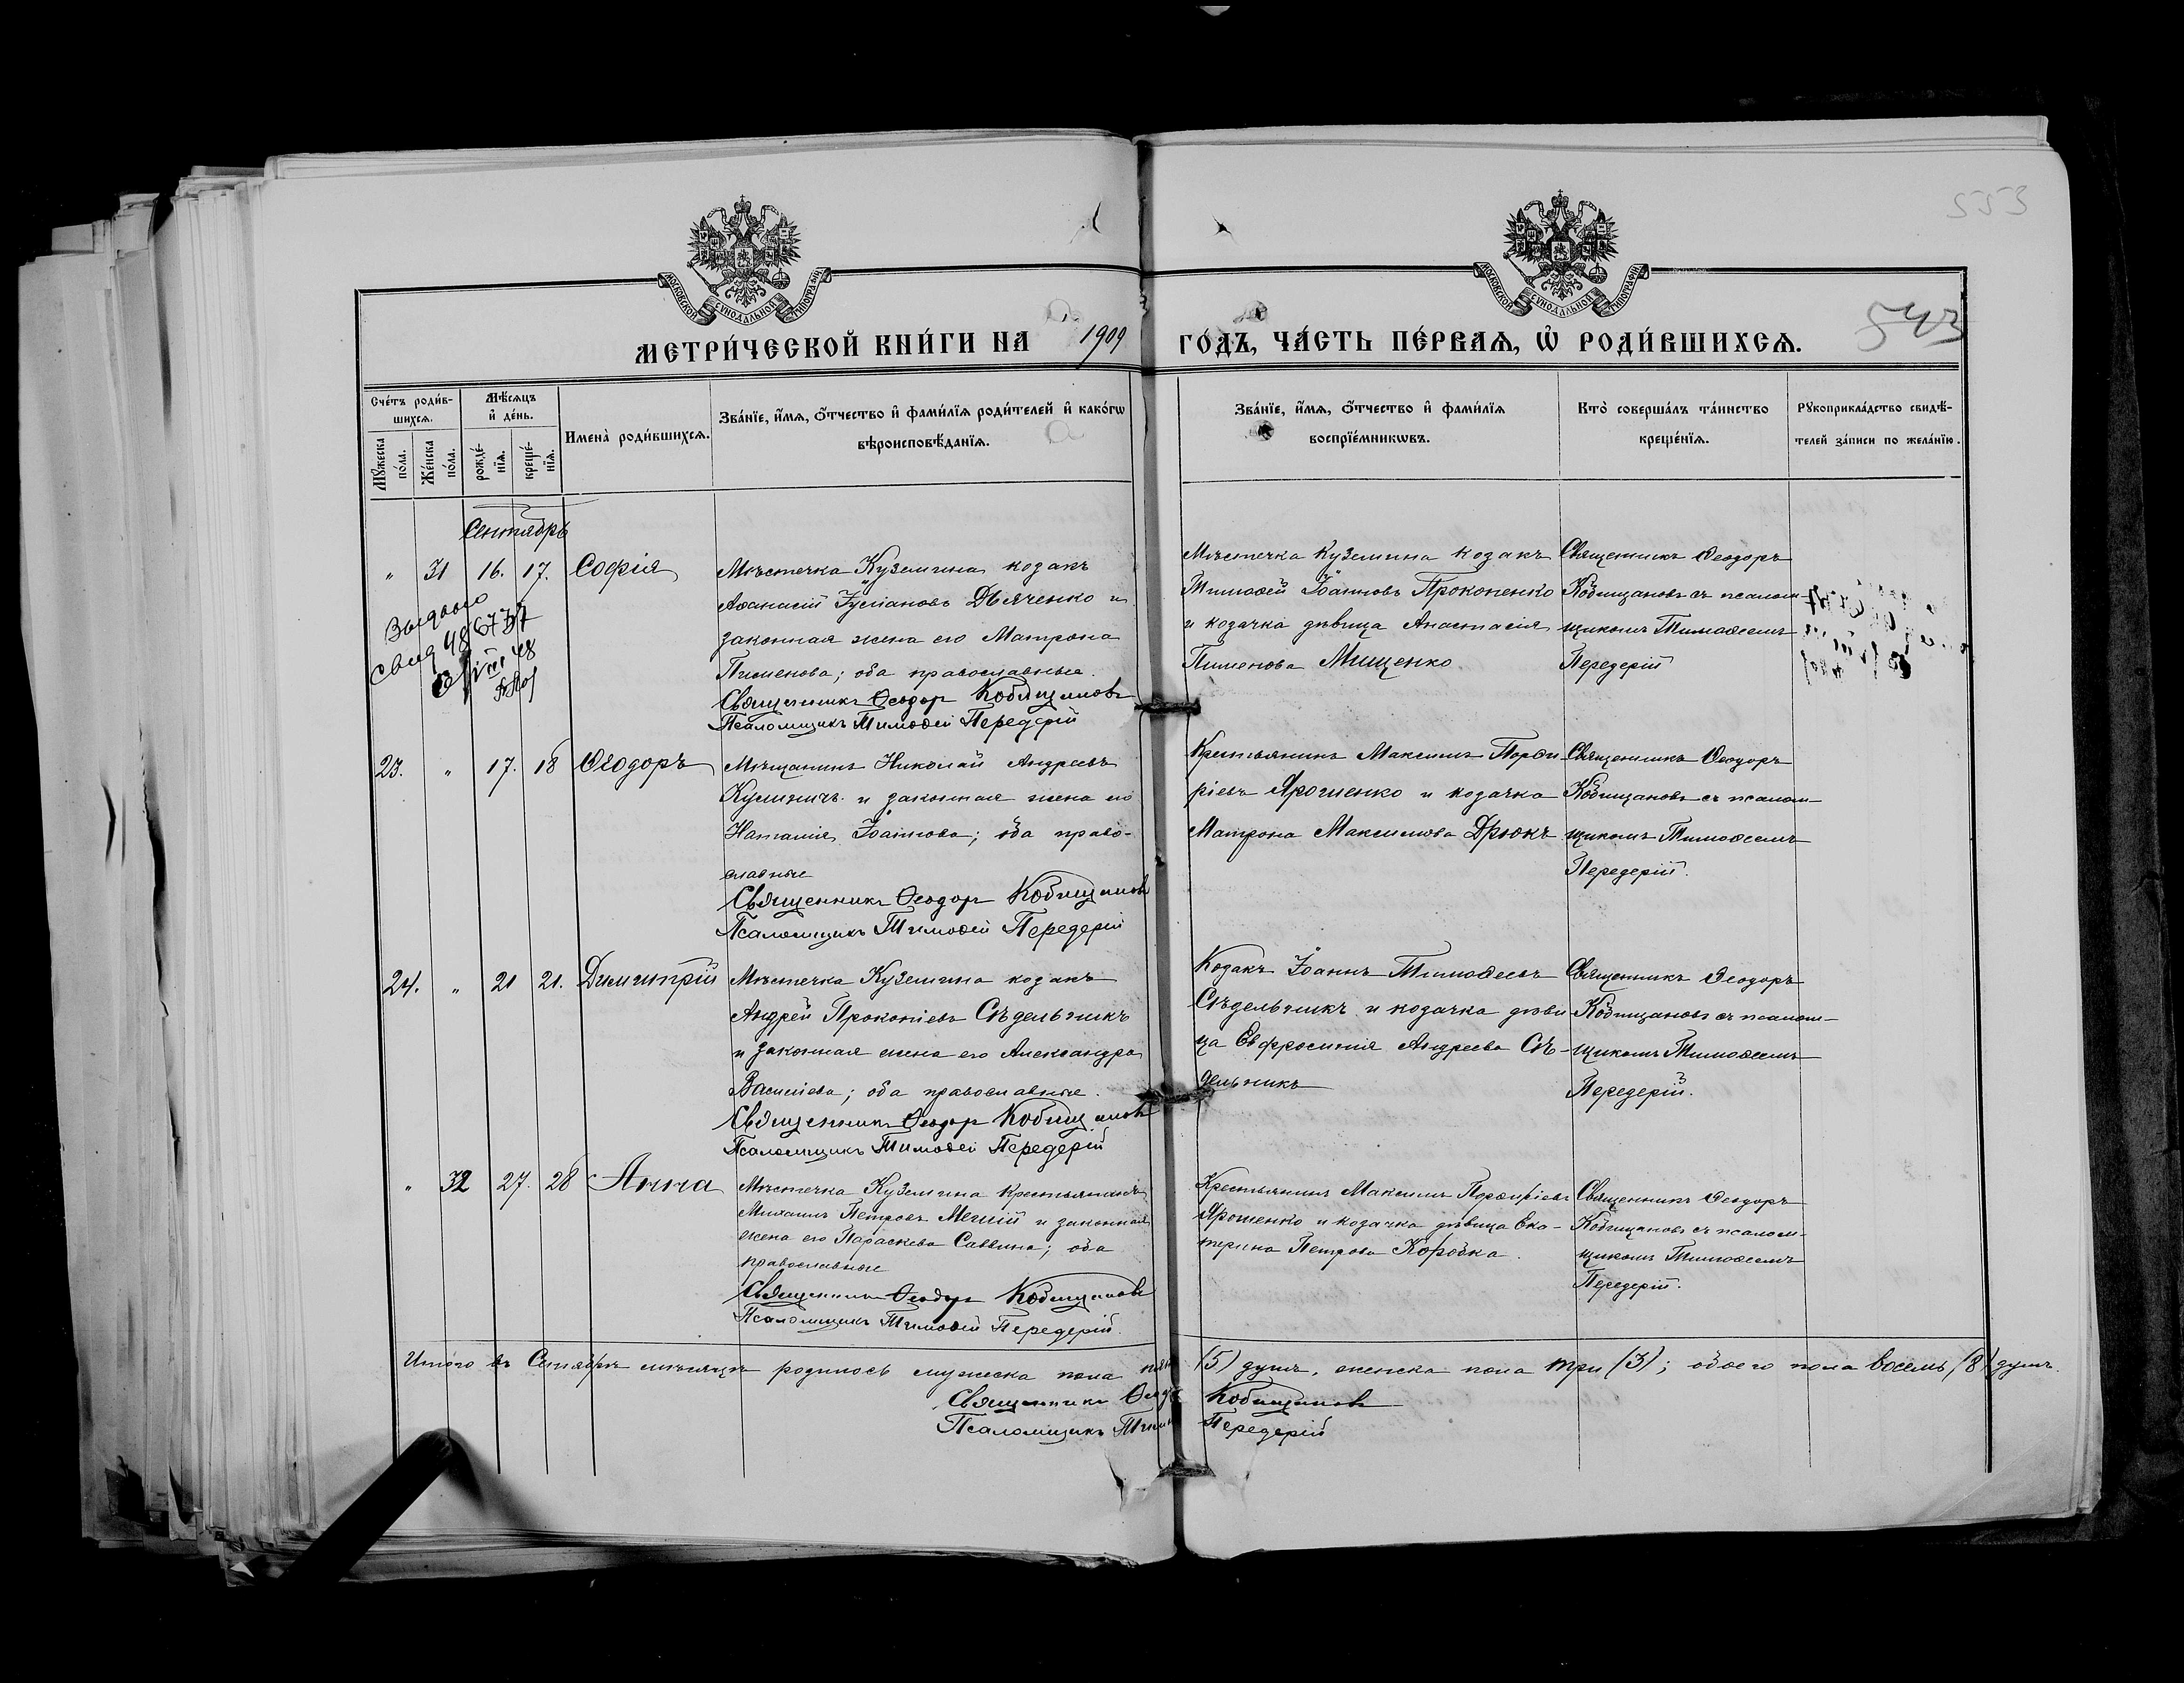 553
543
МОСКОВСКОЙ СУНОДАЛЬНОЙ ТИПОГРАФІИ
МОСКОВСКОЙ СУНОДАЛЬНОЙ ТИПОГРАФІИ
МЕТРИ́ЧЕСКОЙ КНИ́ГИ НА 1909 ГО́ДЪ, ЧА́СТЬ ПЕ́РВАѦ, Ѡ҆ РОДИ́ВШИХСѦ.
Сче́тъ роди́в-
шихсѧ.
Мꙋ́жеска
по́ла.
Же́нска
по́ла.
Мѣ́сѧцъ
и҆ де́нь.
рожде́-
нїѧ.
креще́-
нїѧ.
Имена̀ роди́вшихсѧ.
Зва́нїе, и҆́мѧ, ѻ҆́тчество и҆ фами́лїѧ роди́телей и҆ како́гѡ
вѣроисповѣ́данїѧ.
Зва́нїе, и҆́мѧ, ѻ҆́тчество и҆ фами́лїѧ
воспрїе́мникѡвъ.
Кто̀ соверша́лъ та́инство
креще́нїѧ.
Рꙋкоприкла́дство свидѣ́-
телей за́писи по жела́нїю.
Сентябрь
" 31 16. 17. Софія
Выдано
свид
48
Мѣстечка Куземина козакъ
Аѳанасій Іуліановъ Дьяченко и
законная жена его Матрона
Пименова; оба православные.
Священникъ Ѳеодор Кобищановъ
Псаломщикъ Тимоѳей Передерій
Мѣстечка Куземина козакъ
Тимоѳей Іоанновъ Прокопенко
и козачка дѣвица Анастасія
Пименова Мищенко.
Священникъ Ѳеодоръ
Кобищановъ съ псалом-
щикомъ Тимоѳеемъ
Передерій
23. " 17. 18 Ѳеодоръ
Мѣщанинъ Николай Андреевъ
Кулиничъ и законная жена его
Наталія Іоаннова; оба право-
славные
Священникъ Ѳеодор Кобищановъ
Псаломщикъ Тимоѳей Передерій
Крестьянинъ Максимъ Порфи
ріевъ Ярошенко и козачка
Матрона Максимова Дрюкъ
Священникъ Ѳеодоръ
Кобищановъ съ псалом-
щикомъ Тимоѳеемъ
Передерій.
24. " 21 21. Димитрій
Мѣстечка Куземина козакъ
Андрей Прокопіевъ Сѣдельникъ
и законная жена его Александра
Василіева; оба православные.
Священникъ Ѳеодор Кобищановъ
Псаломщикъ Тимоѳей Передерій
Козакъ Іоаннъ Тимоѳеевъ
Сѣдельникъ и козачка дѣви
ца Евфросинія Андреева Сѣ-
дельникъ
Священникъ Ѳеодоръ
Кобищановъ съ псалом-
щикомъ Тимоѳеемъ
Передерій.
" 32 27. 28 Анна
Мѣстечка Куземина крестьянинъ
Михаилъ Петровъ и законная
жена его Параскева Саввина; оба
православные
Священникъ Ѳеодор Кобищановъ
Псаломщикъ Тимоѳей Передерій.
Крестьянинъ Максимъ Порфиріевъ
Ярошенко и козачка дѣвица Ека-
терина Петрова Коробка.
Священникъ Ѳеодоръ
Кобищановъ съ псалом-
щикомъ Тимоѳеемъ
Передерій.
Итого въ Сентябрѣ мѣсяцѣ родилось мужеска пола пять (5) душъ, женска пола три (3); обоего пола восемь (8) душъ.
Священникъ Ѳеодо Кобищановъ
Псаломщикъ Тимо Передерій